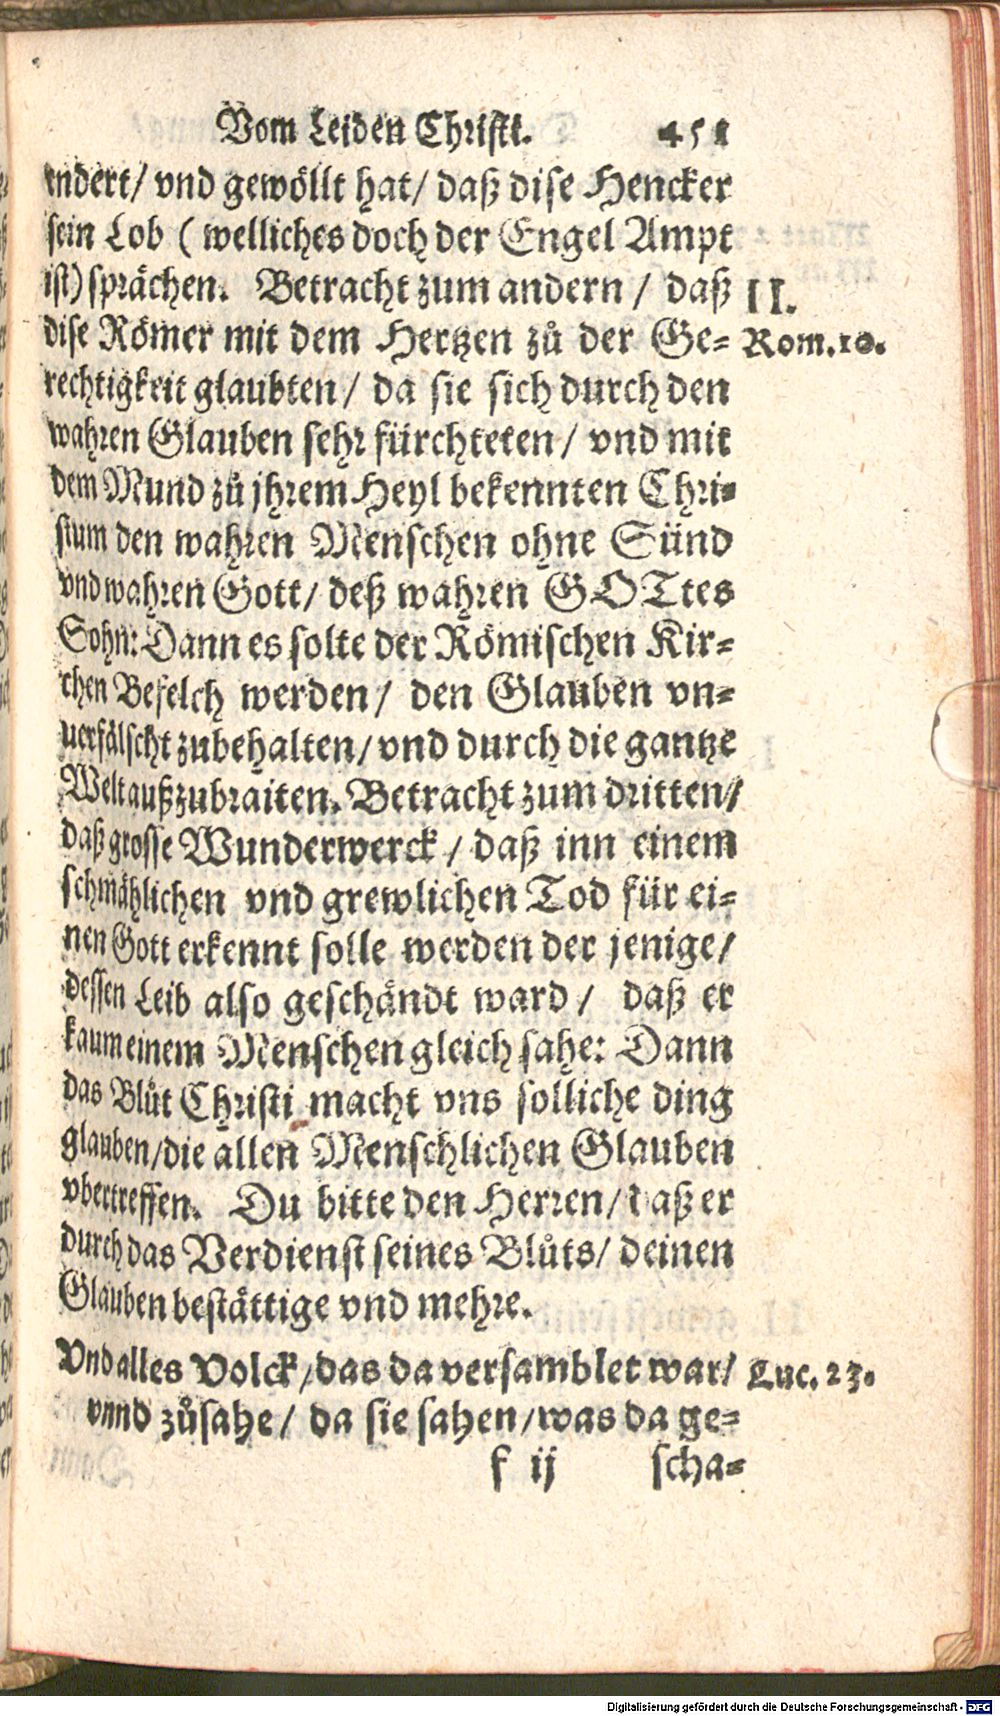 Vom Leiden Christi. 451
endert/ vnd gewöllt hat/ daß dise Hencker
sein Lob ( welliches doch der Engel Ampt
ist) sprächen. Betracht zum andern / daß
II.
dise Römer mit dem Hertzen zů der Ge-
Rom. 10.
rechtigkeit glaubten / da sie sich durch den
wahren Glauben sehr fürchteten / vnd mit
dem Mund zů jhrem Heyl bekennten Chri-
stum den wahren Menschen ohne Sünd
vnd wahren Gott/ deß wahren GOTtes
Sohn: Dann es solte der Römischen Kir-
chen Befelch werden/ den Glauben vn-
uerfälscht zubehalten/ vnd durch die gantze
Welt außzubraiten. Betracht zum dritten/
daß grosse Wunderwerck / daß inn einem
schmählichen vnd grewlichen Tod für ei-
nen Gott erkennt solle werden der jenige/
dessen Leib also geschändt ward / daß er
kaum einem Menschen gleich sahe: Dann
das Blůt Christi macht vns solliche ding
glauben/die allen Menschlichen Glauben
vbertreffen. Du bitte den Herren/ daß er
durch das Verdienst seines Blůts/ deinen
Glauben bestättige vnd mehre.
Vnd alles Volck/das da versamblet war/
Luc. 23.
vnnd zůsahe/ da sie sahen/was da ge-
f ij scha-
Digitalisierung gefördert durch die Deutsche Forschungsgemeinschaft - DFG